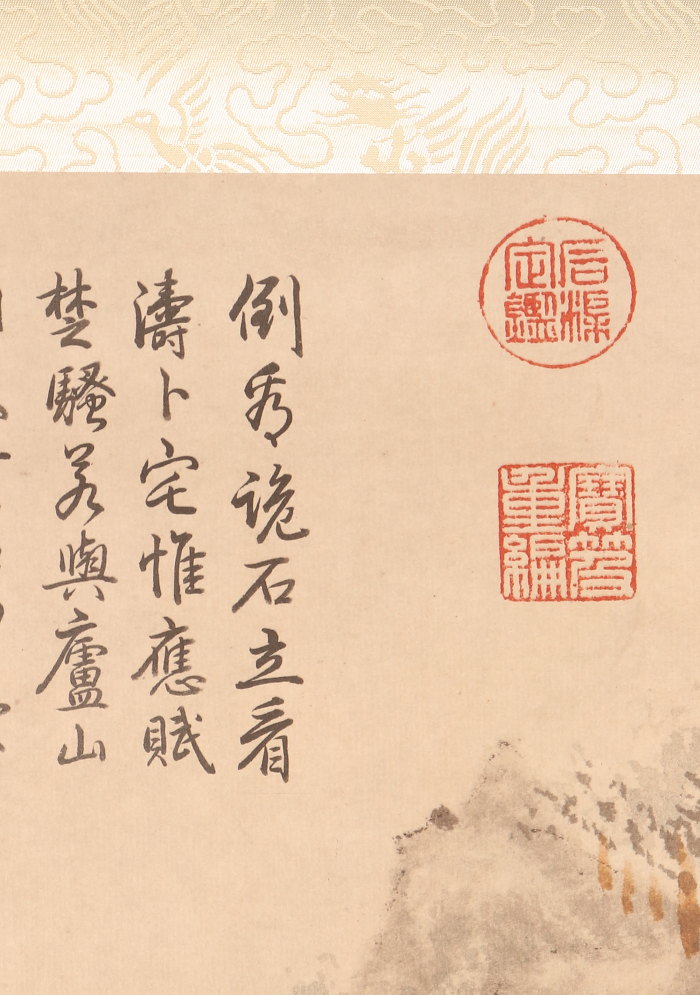 石渠
定鑑
寶笈
重編
倒秀詭石立看
濤卜宅惟應賦
楚騷若與廬山